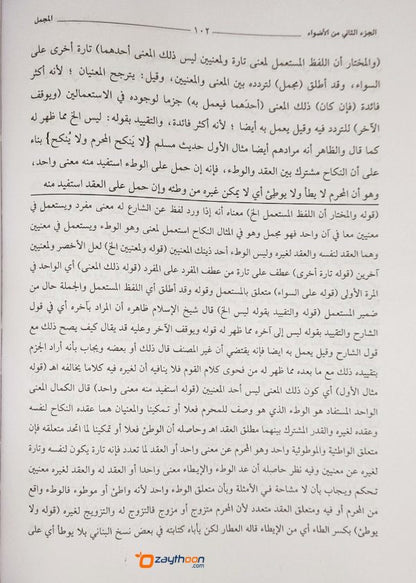 الجزء الثاني من الأضواء ١٠٢ المجمل
(والمختار أن اللفظ المستعمل لمعنى تارة ولمعنيين ليس ذلك المعنى أحدهما) تارة أخرى على
السواء، وقد أطلق (مجمل) لتردده بين المعنى والمعنيين، وقيل: يترجح المعنيان ؛ لأنه أكثر
فائدة (فإن كان) ذلك المعنى (أحدهما فيعمل به) جزما لوجوده في الاستعمالين (ويوقف
الآخر) للتردد فيه وقيل يعمل به أيضا ؛ لأنه أكثر فائدة، والتقييد بقوله: ليس الخ مما ظهر له
كما قال والظاهر أنه مرادهم أيضا مثال الأول حديث مسلم {لا يَنكح المحرم ولا يُنكح} بناء
على أن النكاح مشترك بين العقد والوطء، فإنه إن حمل على الوطء استفيد منه معنى واحد،
وهو أن المحرم لا يطأ ولا يوطئ أي لا يمكن غيره من وطئه وإن حمل على العقد استفيد منه
(قوله والمختار أن اللفظ المستعمل الخ) معناه أنه إذا ورد لفظ عن الشارع له معنى مفرد ويستعمل في
معنيين معا في آن واحد فهو مجمل وهو في المثال النكاح استعمل لمعنى وهو الوطء ويستعمل في معنيين
وهما العقد لنفسه والعقد لغيره وليس الوطء أحد ذينك المعنيين (قوله ولمعنيين الخ) لعل الأخصر ولمعنيين
آخرين (قوله تارة أخرى) عطف على تارة من عطف المفرد على المفرد (قوله ذلك المعنى) أي الواحد في
المرة الأولى (قوله على السواء) متعلق بالمستعمل وقوله وقد أطلق أي اللفظ المستعمل والجملة حال من
ضمير المستعمل (قوله والتقييد بقوله ليس الخ) قال شيخ الإسلام ظاهره أن المراد بآخره أي في قول
الشارح والتقييد بقوله ليس إلى آخره مما ظهر له قوله ويوقف الآخر وعليه قد يقال كيف يصح ذلك مع
قول الشارح وقيل يعمل به ايضا فإنه يقتضي أن غير المصنف قال ذلك أو بعضه ويجاب بأنه أراد الجزم
بتقييده ذلك مع ما بعده مما ظهر له من فحوى كلام القوم فلا ينافيه أن غيره فيه كلاما يخالفه اهـ (قوله
مثال الأول) أي كون ذلك المعنى ليس أحد المعنيين (قوله استفيد منه معنى واحد) قال الكمال المعنى
الواحد المستفاد هو الوطء الذي هو وصف للمحرم فعلا أو تمكينا والمعنيان هما عقده النكاح لنفسه
وعقده لغيره والقدر المشترك بينهما مطلق العقد اهـ وحاصله أن الوطئ فعلا أو تمكينا لما اتحد متعلقه فإن
متعلق الواطئية والموطوئية واحد وهو المحرم عن معنى واحد أو العقد لما تعدد فإنه تارة يكون لنفسه وتارة
لغيره عن معنيين وفيه نظر حاصله أن عد الوطء والإيطاء معنى واحدا أو العقد له والعقد لغيره معنيين
تحكم ويجاب بأن لا مشاحة في الأمثلة وبأن متعلق الوطء واحد لأنه واطئ أو موطوء فالوطء واقع
من المحرم أو فيه ومتعلق العقد متعدد لأن المحرم متزوج أو مزوج فالتزوج له والتزويج لغيره (قوله ولا
يوطئ) بكسر الطاء أي من الإيطاء قاله العطار لكن يأباه كتابته في بعض نسخ البناني بلا يوطأ أي على
zaythoon
.com